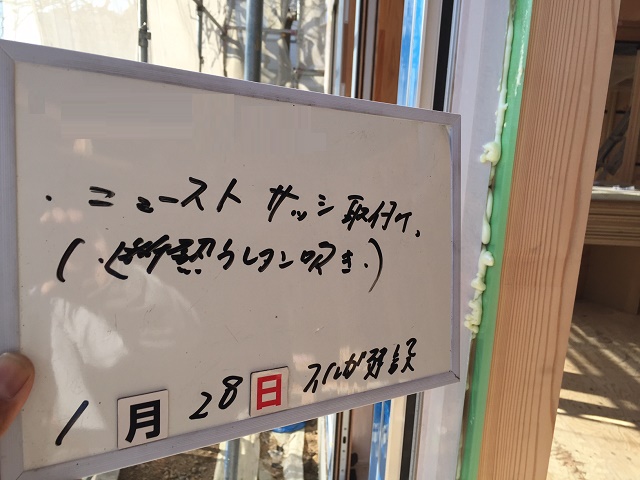 ・ニュースト サッシ取付け、
(・断熱ウレタン吹き・)
1月28日